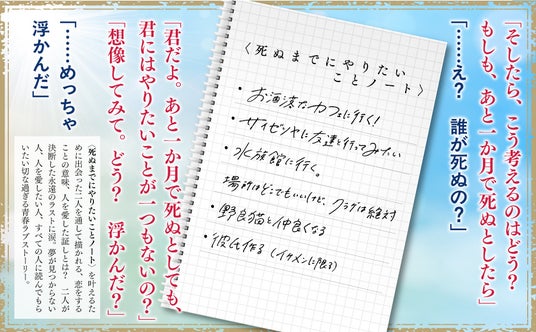 「そしたら、こう考えるのはどう？
もしも、あと一か月で死ぬとしたら」
「……え？　誰が死ぬの？」
〈死ぬまでにやりたい
ことノート〉
・お洒落なカフェに行く！
・サイゼリヤに友達と行ってみたい
・水族館に行く。
場所はどこでもいいけど、クラゲは絶対
・野良猫と仲良くなる
・彼氏作る（イケメンに限る）
「君だよ。あと一か月で死ぬとしても、
君にはやりたいことが一つもないの？」
「想像してみて。どう？　浮かんだ？」
「……めっちゃ
浮かんだ」
〈死ぬまでにやりたいことノート〉を叶えるた
めに出会った二人を通して描かれる、恋をする
ことの意味、人を愛した証しとは？　二人が
決断した永遠のラストに涙。夢が見つからない
人、人を愛したい人、すべての人に読んでもら
いたい切な過ぎる青春ラブストーリー。